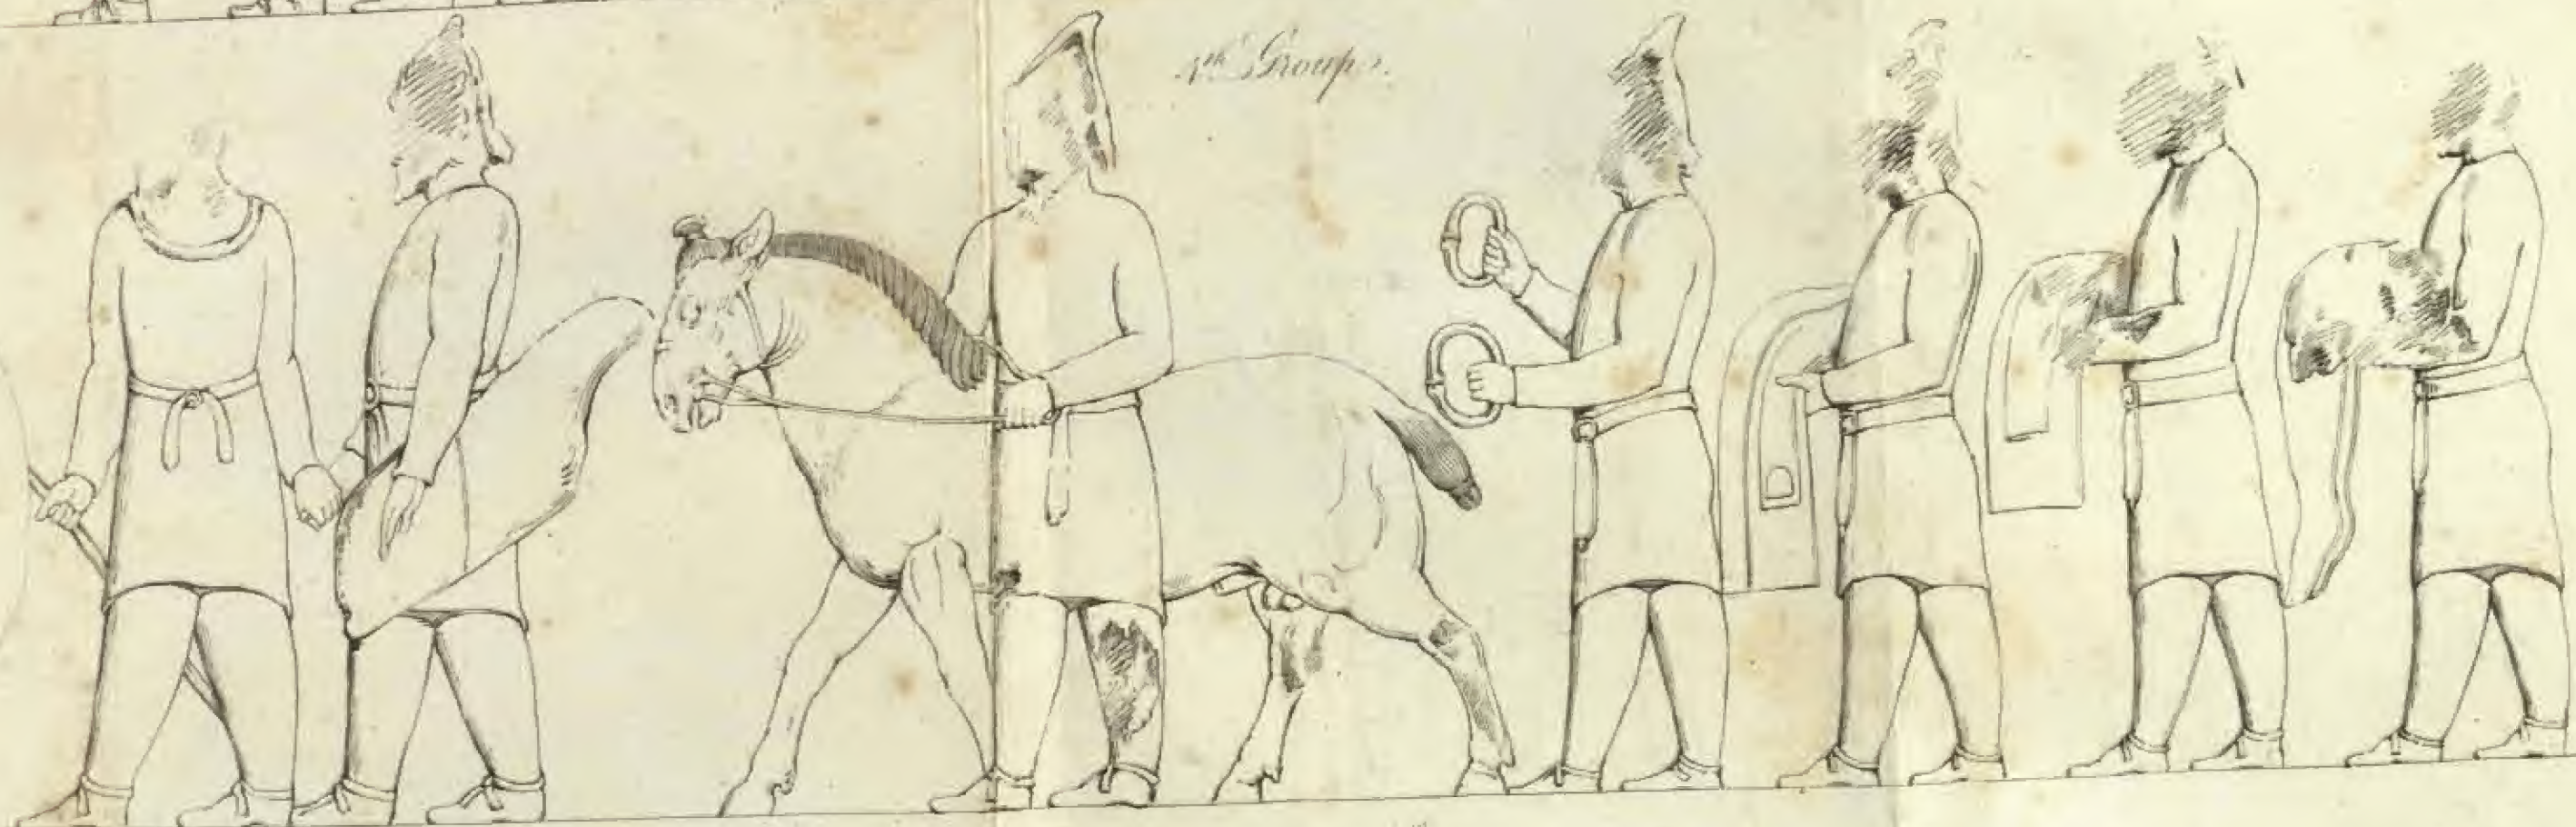 4th Group.